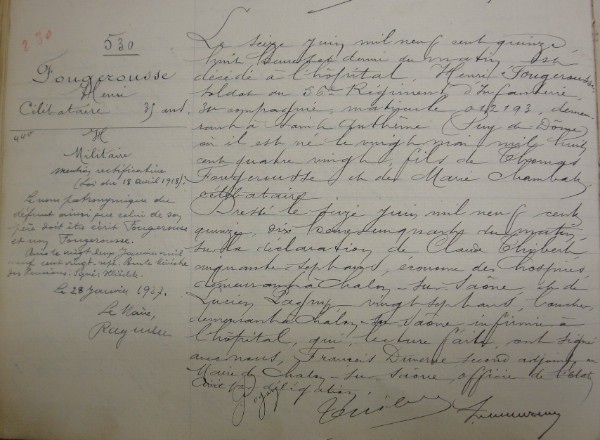 530
Fougerousse
Henri
Célibataire 35 ans
Militaire
mention rectificative
(Loi du 18 avril 1918).
Le nom patronymique du
défunt ainsi que celui de son
père doit être écrit Fougerouse
et non Fougerousse.
Le 28 Janvier 1927.
Le Maire,
Le seize juin mil neuf cent quinze
huit heures et demie du matin est
décédé à l'hôpital, Henri Fougerousse
soldat au 56e Régiment d'Infanterie,
compagnie, matricule 012193, demeu
rant à Saint Anthème (Puy de Dôme)
où il est né le vingt mars mil huit
cent quatre vingt, fils de
Fougerousse et de Marie
célibataire.
Dressé le seize juin mil neuf cent
quinze, dix heures du matin,
sur la déclaration de Claude
cinquante-sept ans, économe des hospices,
demeurant à Chalon-sur-Saône, et de
Lucien vingt sept ans,
demeurant à Chalon-sur-Saône infirmier à
l'hôpital, qui, lecture faite, ont signé
avec nous, François second adjoint au
Maire de Chalon-sur-Saône, officier de l'Etat
Civil par délégation.